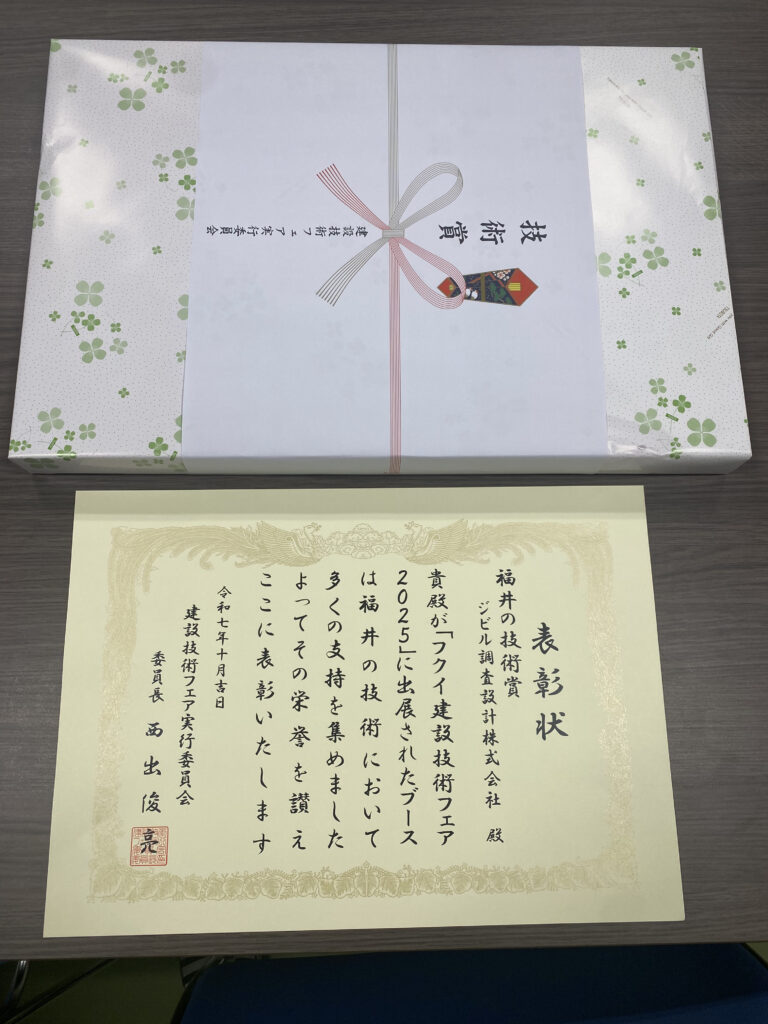 技術賞
建設技術フェア実行委員会
表彰状
福井の技術賞
ジビル調査設計株式会社 殿
貴殿が「フクイ建設技術フェア
2025」に出展されたブース
は福井の技術において
多くの支持を集めました
よってその栄誉を讃え
ここに表彰いたします
令和七年十月吉日
建設技術フェア実行委員会
委員長 西出俊亮